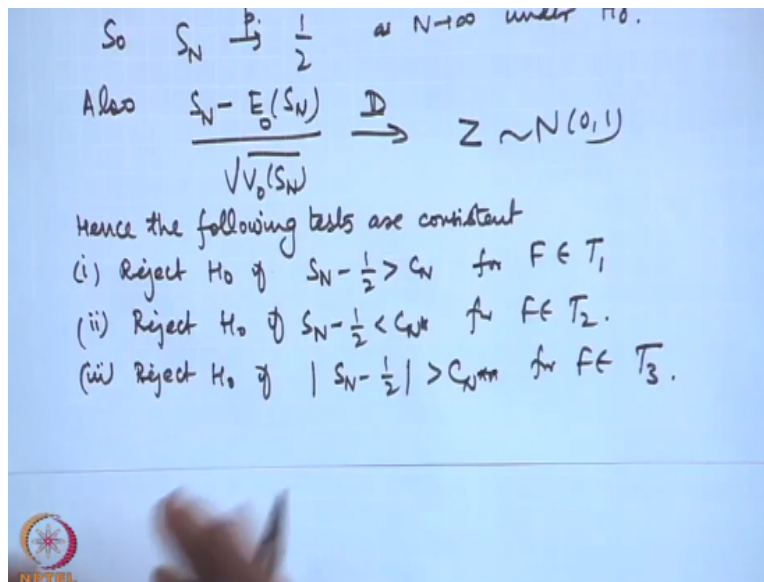 So S_N →^p 1/2 as N→∞ under H₀.
Also (S_N - E₀(S_N)) / √V₀(S_N) →^D Z ~ N(0,1)
Hence the following tests are consistent
(i) Reject H₀ if S_N - 1/2 > C_N for F ∈ T₁
(ii) Reject H₀ if S_N - 1/2 < C_N* for F ∈ T₂.
(iii) Reject H₀ if | S_N - 1/2 | > C_N** for F ∈ T₃.
NPTEL